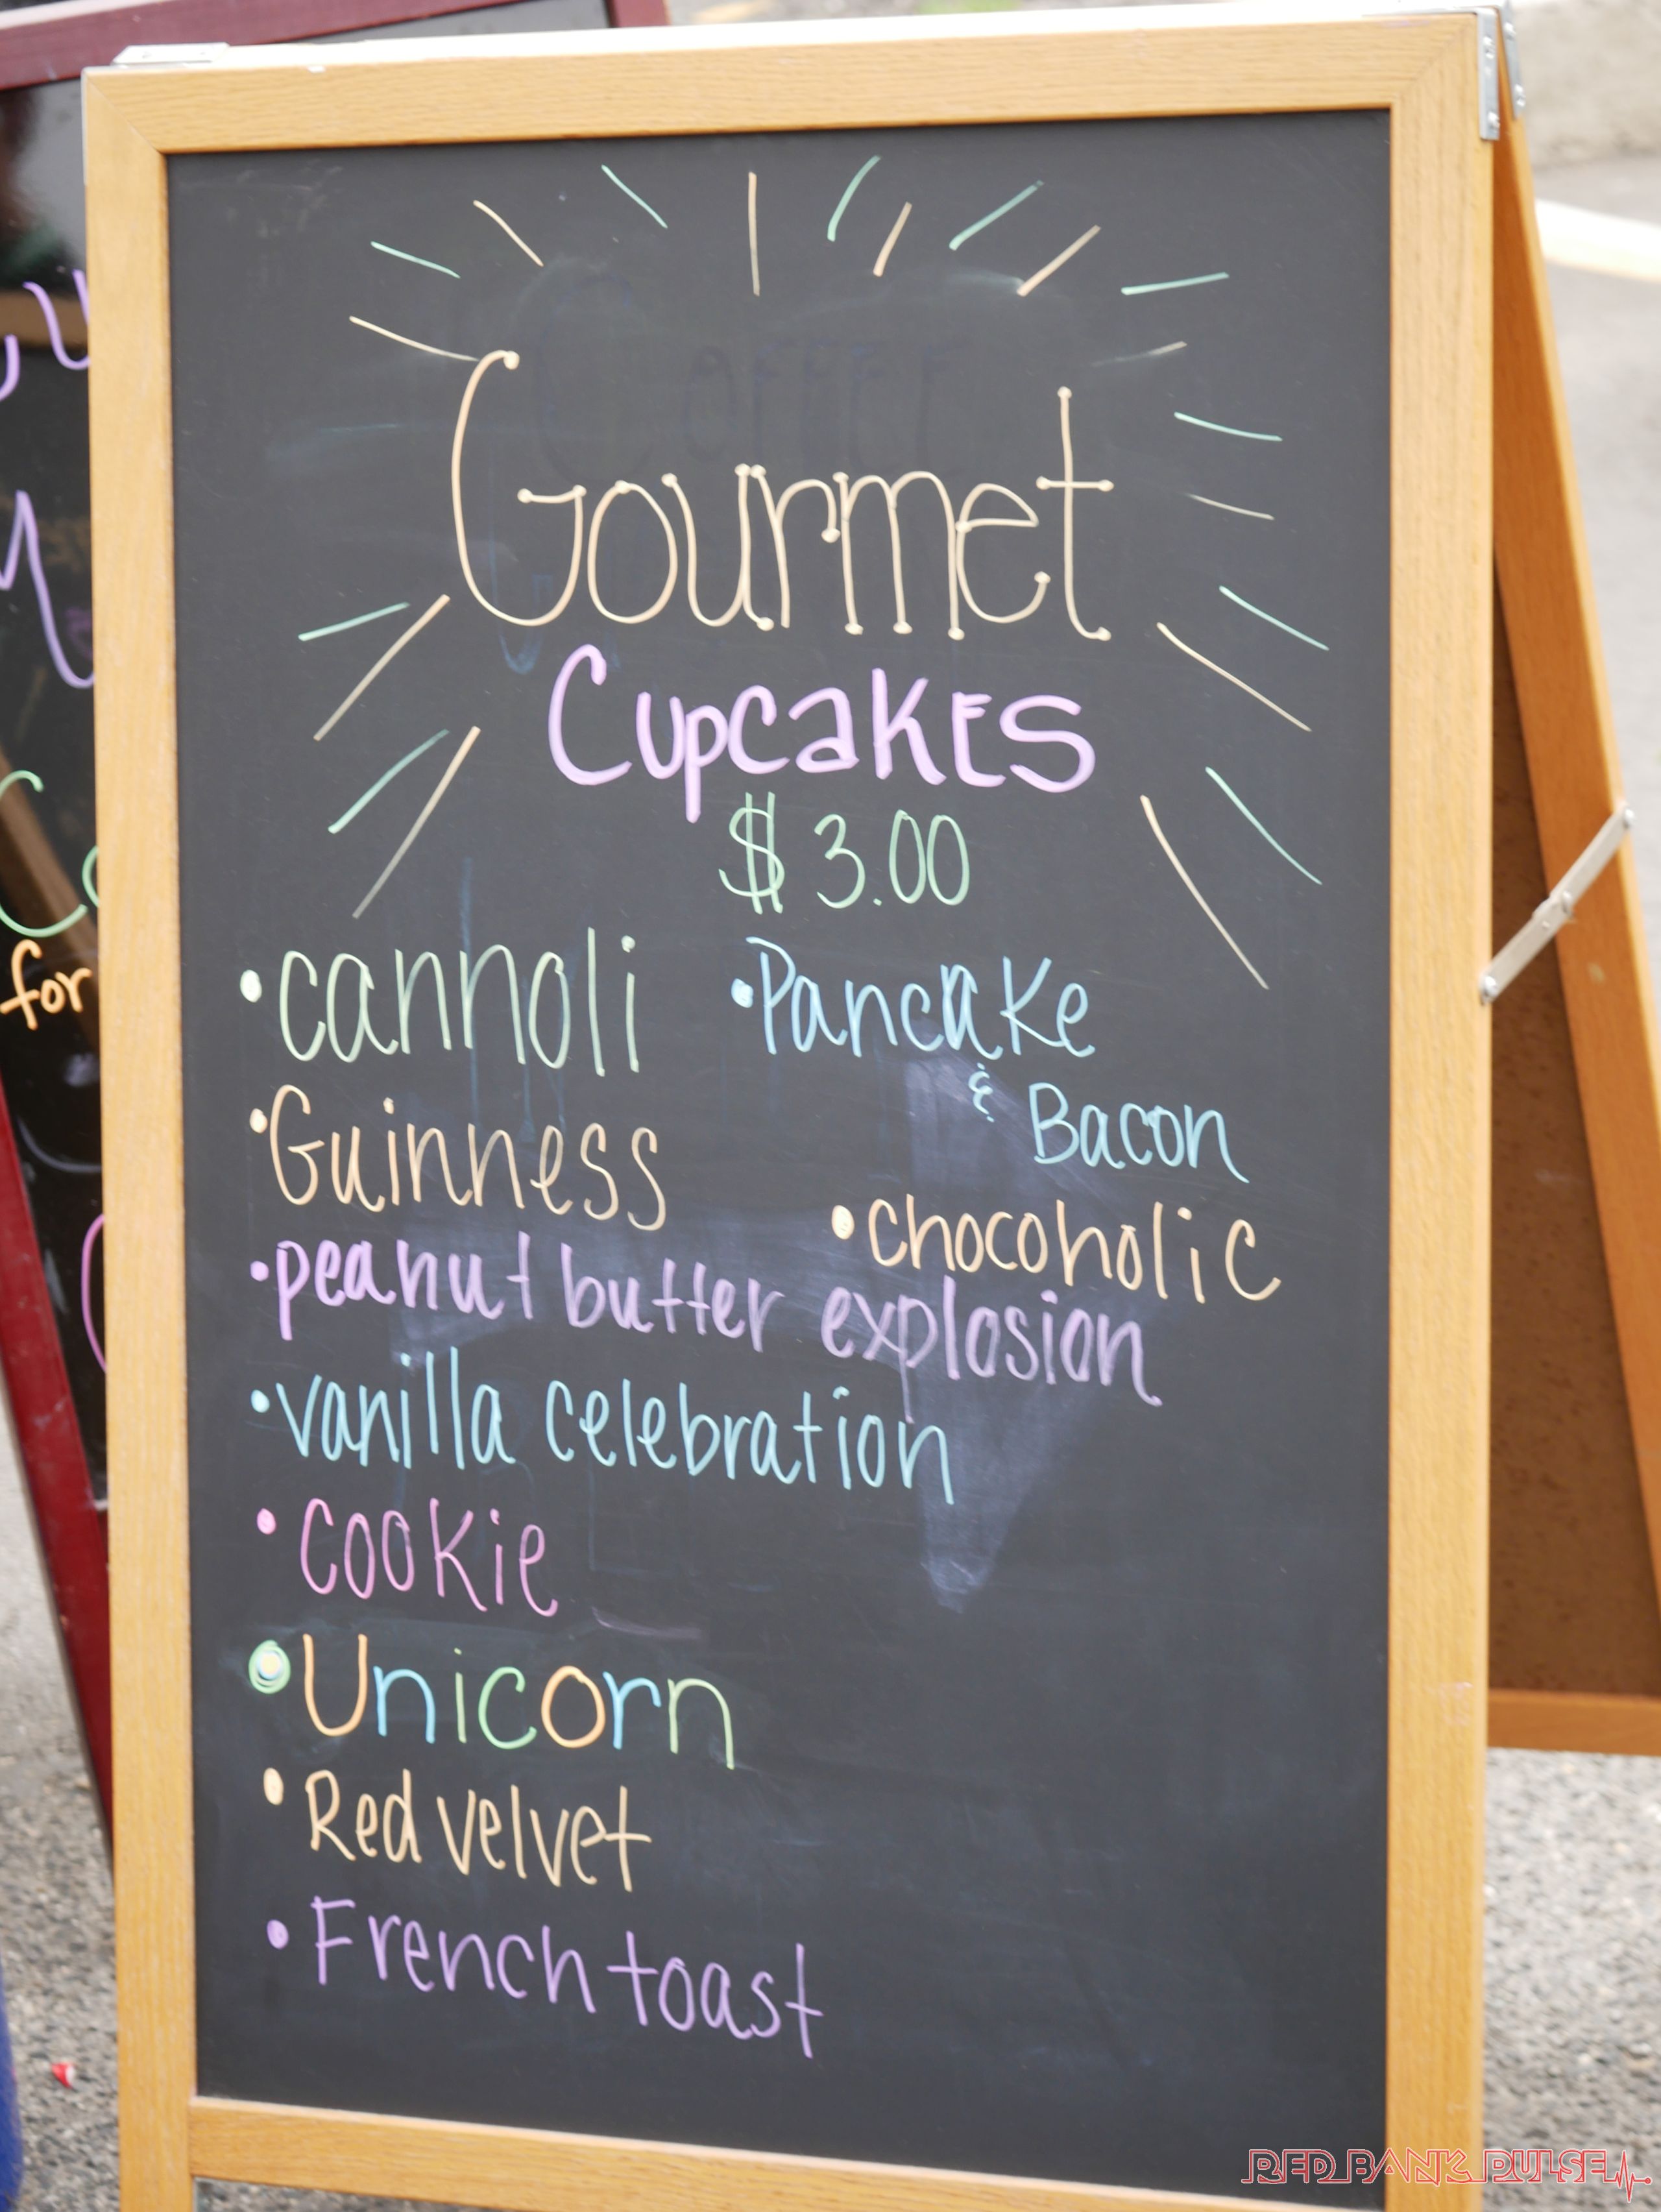 Gourmet
Cupcakes
$3.00
• cannoli
• Pancake
& Bacon
• Guinness
• chocoholic
• peanut butter explosion
• vanilla celebration
• cookie
• Unicorn
• Red velvet
• French toast
for
RED BANK PULSE